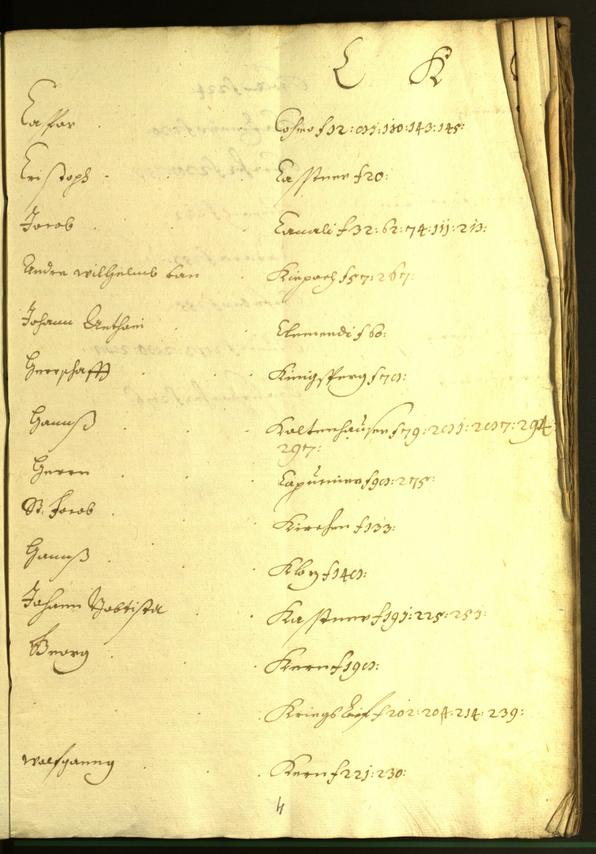 C K
Caspar Cosmo f 12: 91: 130: 143: 145:
Cristoph Casstner f 20:
Jacob Canali f 32: 62: 74: 111: 213:
Andre Wilhelmb von Kirpach f 57: 267:
Johann Anthoni Clementi f 60:
Herrschafft Künigsperg f 70:
Hannß Kaltenhauser f 79: 294
297:
Herrn Capuciner f 90: 275:
St. Jacob Kirchen f 133:
Hannß Kloz f 140:
Johann Babtista Kasstner f 191: 225: 251:
Georg Kern f 190:
Kriegs f 202: 204: 214: 239:
Wolfganng Kern f 221: 230: